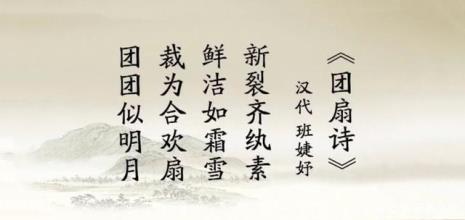 《团扇诗》
汉代 班婕妤
新裂齐纨素
鲜洁如霜雪
裁为合欢扇
团团似明月